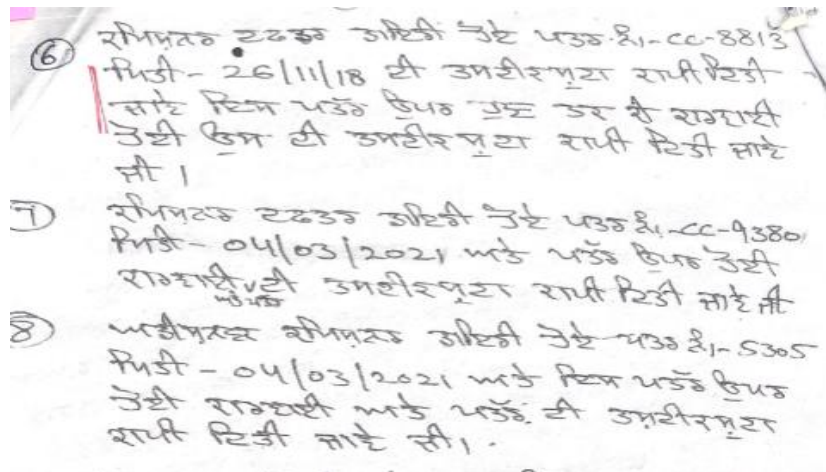 ⑥ ਰਜਿਸਟਰ ਦਫਤਰ ਡਾਇਰੀ ਹੋਏ ਪੱਤਰ ਨੰ:-CC-8813
ਮਿਤੀ - 26/11/18 ਦੀ ਤਸਦੀਕਸ਼ੁਦਾ ਕਾਪੀ ਦਿੱਤੀ
ਜਾਵੇ ਇਸ ਪੱਤਰ ਉਪਰ ਹੁਣ ਤਕ ਜੋ ਕਾਰਵਾਈ
ਹੋਈ ਉਸ ਦੀ ਤਸਦੀਕਸ਼ੁਦਾ ਕਾਪੀ ਦਿੱਤੀ ਜਾਵੇ
ਜੀ ।
7) ਰਜਿਸਟਰ ਦਫਤਰ ਡਾਇਰੀ ਹੋਏ ਪੱਤਰ ਨੰ:-CC-9380,
ਮਿਤੀ - 04/03/2021 ਅਤੇ ਪੱਤਰ ਉਪਰ ਹੋਈ
ਕਾਰਵਾਈ ਦੀ ਤਸਦੀਕਸ਼ੁਦਾ ਕਾਪੀ ਦਿੱਤੀ ਜਾਵੇ ਜੀ
ਅਤੇ ਪੱਤਰ
8) ਅਡੀਸ਼ਨਲ ਰਜਿਸਟਰ ਡਾਇਰੀ ਹੋਏ ਪੱਤਰ ਨੰ:-5305
ਮਿਤੀ - 04/03/2021 ਅਤੇ ਇਸ ਪੱਤਰ ਉਪਰ
ਹੋਈ ਕਾਰਵਾਈ ਅਤੇ ਪੱਤਰ ਦੀ ਤਸਦੀਕਸ਼ੁਦਾ
ਕਾਪੀ ਦਿੱਤੀ ਜਾਵੇ ਜੀ।